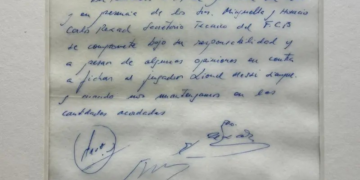 y en presencia de los Srs. Minguella y Horacio
Carles Rexach Secretario Técnico del F.C.B
se compromete bajo su responsabilidad y
a pesar de algunas opiniones en contra
a fichar al jugador Lionel Messi
y cuando nos mantengamos en las
cantidades acordadas